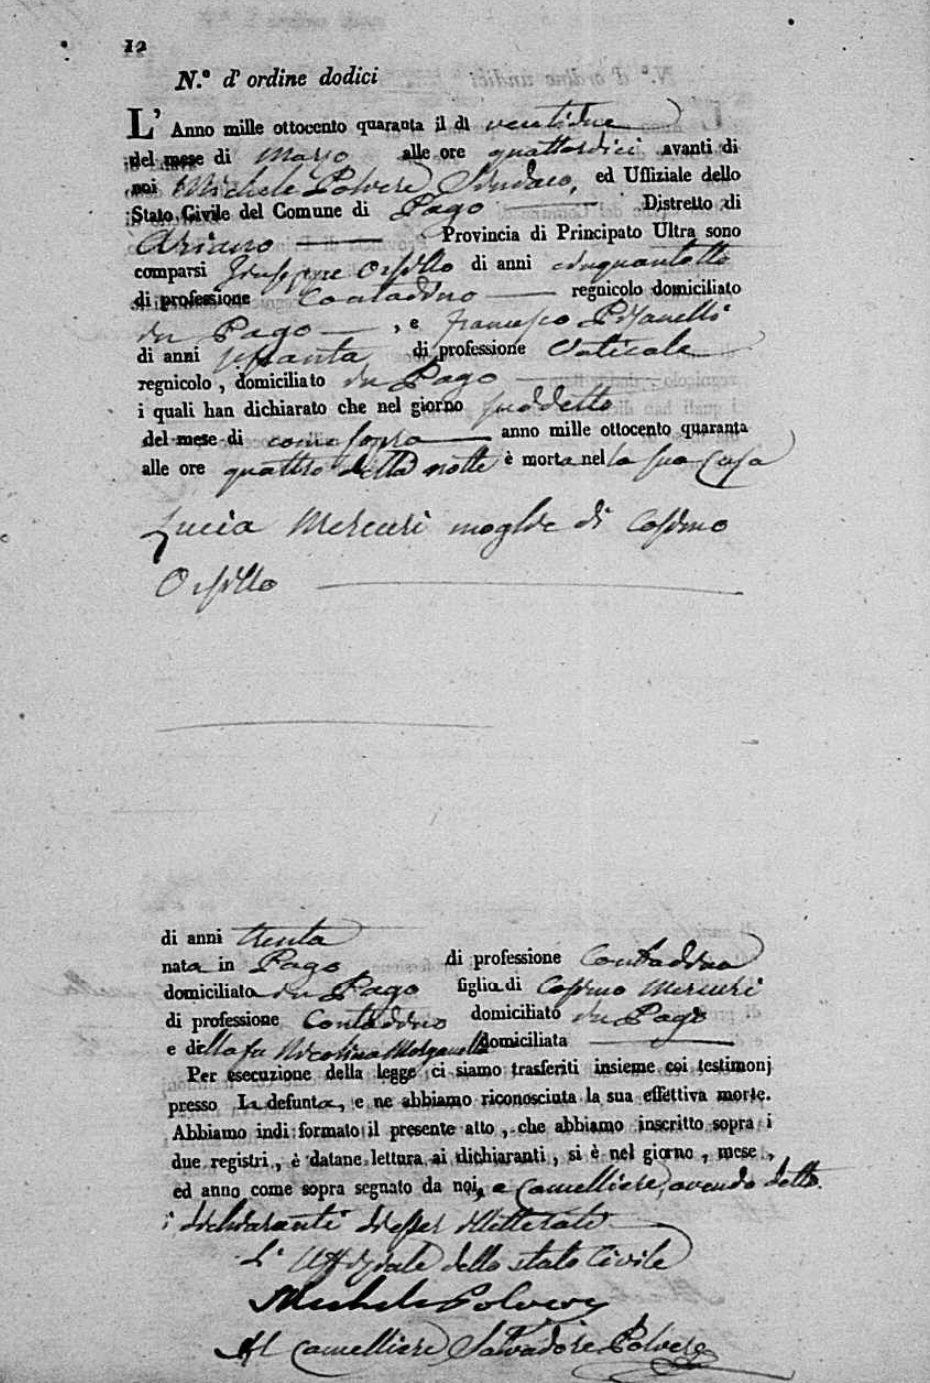 12
N.° d' ordine dodici
L' Anno mille ottocento quaranta il dì ventidue
del mese di Marzo alle ore quattordici avanti di
noi Michele Polvere Sindaco, ed Uffiziale dello
Stato Civile del Comune di Pago Distretto di
Ariano Provincia di Principato Ultra sono
comparsi Giuseppe Orsillo di anni cinquantotto
di professione Contadino regnicolo domiciliato
in Pago , e Francesco Pizanelli
di anni sessanta di professione Vaticale
regnicolo , domiciliato in Pago
i quali han dichiarato che nel giorno suddetto
del mese di come sopra anno mille ottocento quaranta
alle ore quattro della notte è morta nella sua Casa
Lucia Mercuri moglie di Cosimo
Orsillo
di anni trenta
nata in Pago di professione Contadina
domiciliata in Pago figlia di Cosimo Mercuri
di professione Contadino domiciliato in Pago
e della fu Nicolina Morganella domiciliata
Per esecuzione della legge ci siamo trasferiti insieme coi testimonj
presso La defunta, e ne abbiamo riconosciuta la sua effettiva morte.
Abbiamo indi formato il presente atto , che abbiamo inscritto sopra i
due registri , è datane lettura ai dichiaranti , si è nel giorno , mese ,
ed anno come sopra segnato da noi, e Cancelliere, avendo detto
i dichiaranti d'esser illetterati
L' Uffiziale dello stato Civile
Michele Polvere
Il Cancelliere Salvadore Polvere